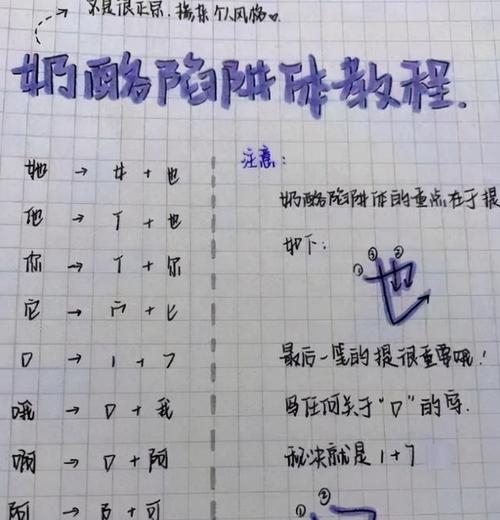 不是很正宗,掺杂个人风格。
奶酪陷阱体教程.
她 → 女 + 也
他 → 亻 + 也
你 → 亻 + 尔
它 → 宀 + 匕
口 → 1 + 7
哦 → 口 + 我
啊 → 口 + 阿
阿 → 阝 + 可
注意:
奶酪陷阱体的重点在于提
如下:
① ③ ②
也
最后一笔的提很重要哦!
写任何关于“口”的字.
秘决就是 1 + 7
① ②